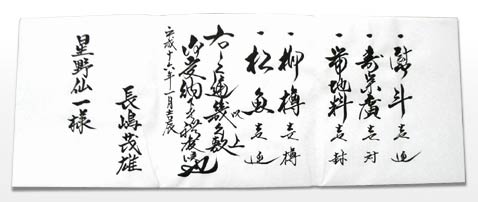 一 熨斗 壱連
一 寿栄廣 壱対
一 帯地料 壱封
一 柳樽 壱樽
一 松魚 壱連
右之通幾久敷
御受納
以上
平成十六年一月吉辰
長嶋茂雄
星野仙一様